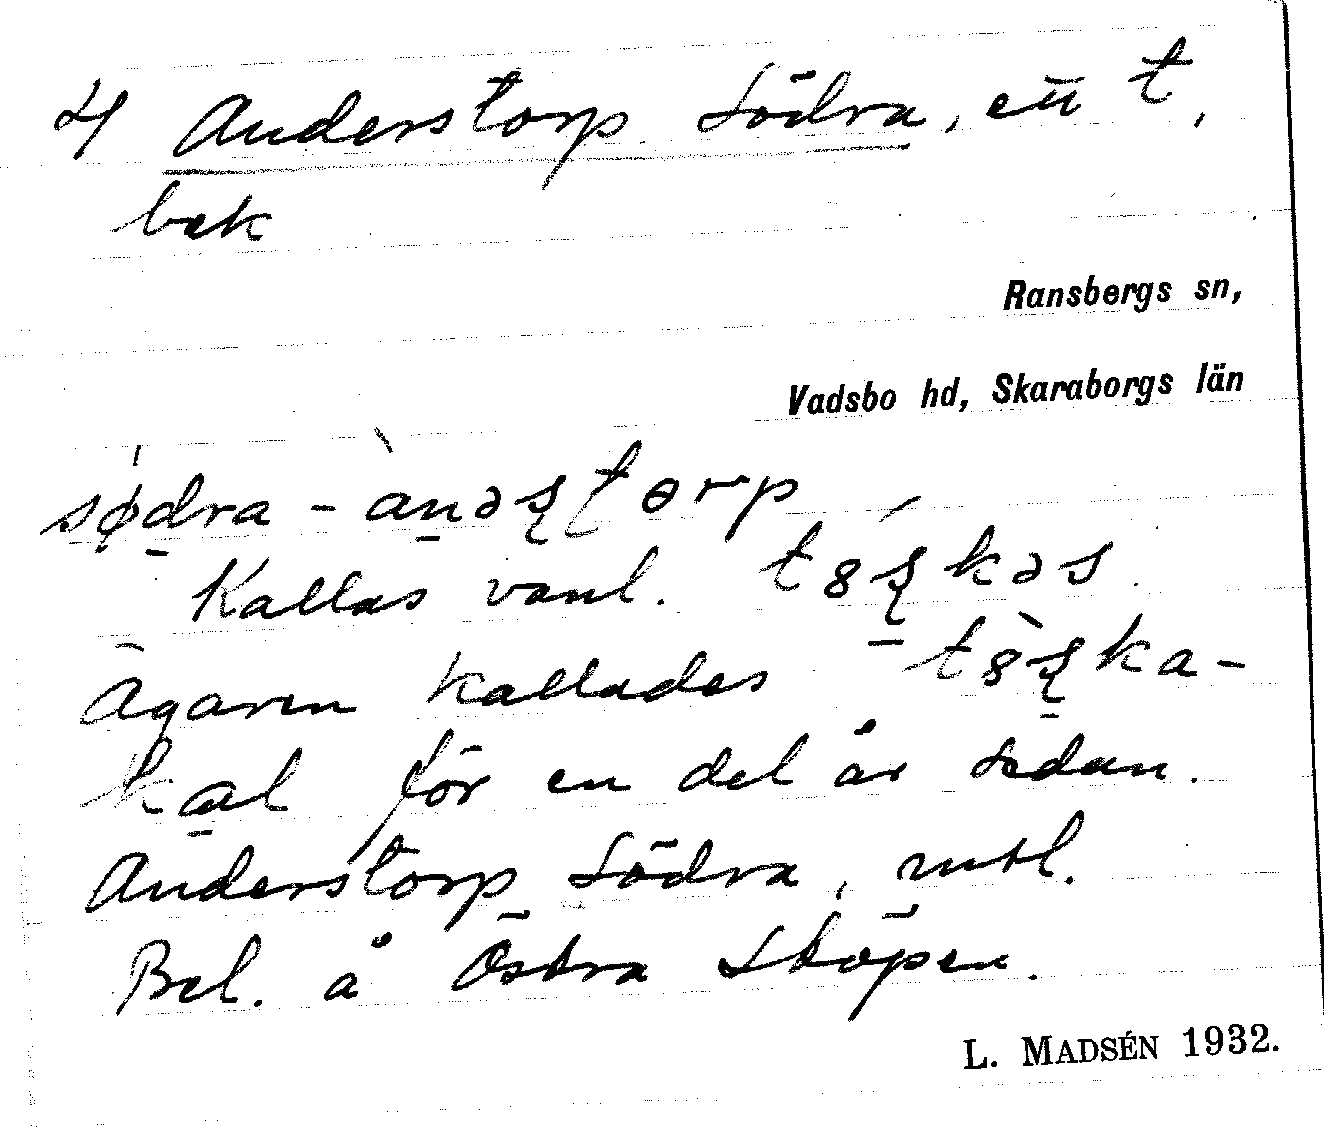 4 Anderstorp Södra, ett t,
bek
Ransbergs sn,
Vadsbo hd, Skaraborgs län
södra - anəʂʈɵrp
Kallas vanl. tɵʂkəs.
Ägaren kallades tɵʂka-
kal för en del år sedan.
Anderstorp Södra, mtl.
Bel. å Östra Sköpen.
L. MADSÉN 1932.